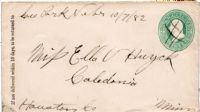 If not delivered within 10 days, to be returned to
Lee Park Neb 10/7/82
Miss Ella V Huyck
Caledonia
Houston Co Minn